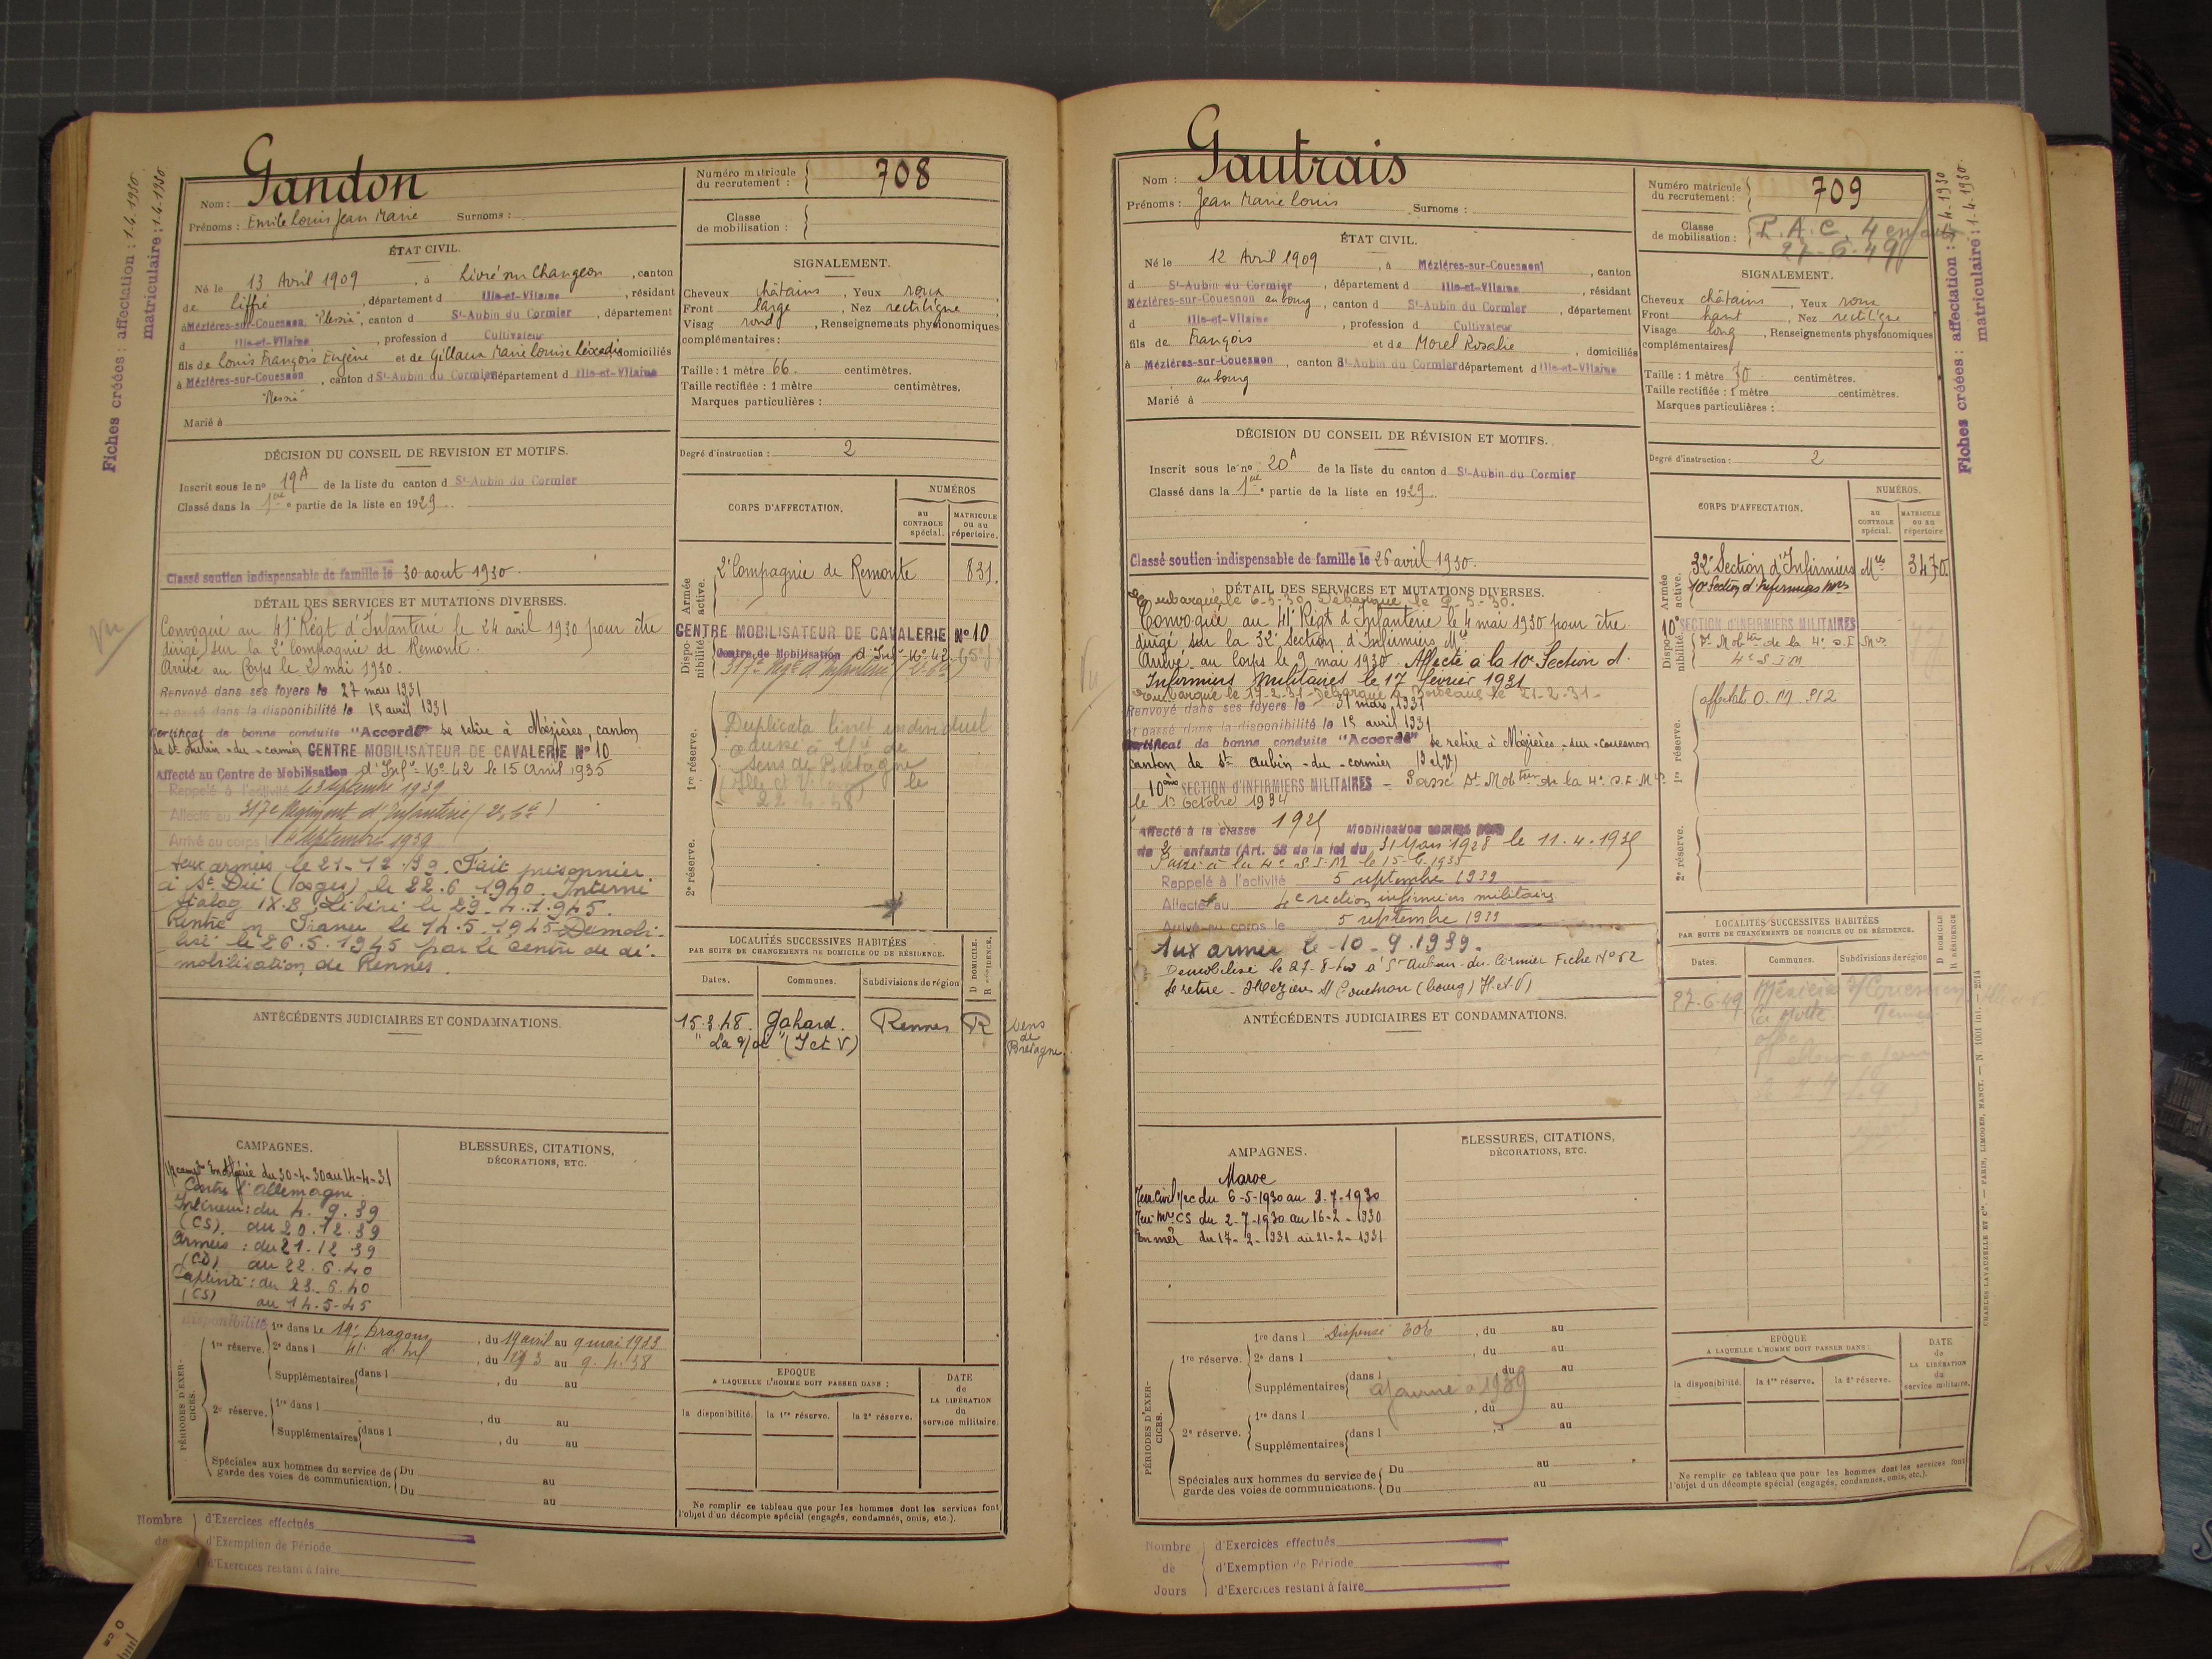 Fiches créées : affectation : 1.4.1930.
matriculaire : 1.4.1930
Gandon
Nom :
Prénoms : Emile Louis Jean Marie Surnoms :
Numéro matricule
du recrutement :
708
Classe
de mobilisation :
ÉTAT CIVIL.
Né le 13 Avril 1909, à Livré sur Changeon, canton
de Liffré, département d Ille-et-Vilaine, résidant
à Mézières-sur-Couesnon "Plessis", canton d St-Aubin du Cormier, département
d Ille-et-Vilaine, profession d Cultivateur
fils de Louis François Eugène et de Gillaux Marie Louise domiciliés
à Mézières-sur-Couesnon, canton d St-Aubin du Cormier département d Ille-et-Vilaine
"Plessis"
Marié à
SIGNALEMENT.
Cheveux châtains, Yeux roux,
Front large, Nez rectiligne,
Visag rond, Renseignements physionomiques
complémentaires :
Taille : 1 mètre 66. centimètres.
Taille rectifiée : 1 mètre centimètres.
Marques particulières :
Degré d'instruction : 2
DÉCISION DU CONSEIL DE REVISION ET MOTIFS.
Inscrit sous le no 19A de la liste du canton d St-Aubin du Cormier
Classé dans la 1re partie de la liste en 1929.
Classé soutien indispensable de famille le 30 aout 1930.
DÉTAIL DES SERVICES ET MUTATIONS DIVERSES.
vu
Convoqué au 41e Régt d'Infanterie le 24 avril 1930 pour être
dirigé sur la 2e Compagnie de Remonte.
Arrivé au Corps le 2 mai 1930.
Renvoyé dans ses foyers le 27 mars 1931
et passé dans la disponibilité le 15 avril 1931
Certificat de bonne conduite "Accordé" se retire à Mézières, canton
de St Aubin-du-cormier CENTRE MOBILISATEUR DE CAVALERIE No 10
Affecté au Centre de Mobilisation d'Infie No 42 le 15 Avril 1935
Rappelé à l'activité le 3 septembre 1939
Affecté au 317e Régiment d'Infanterie
Arrivé au corps le 4 septembre 1939
Aux armées le 21-12-39. Fait prisonnier
à St Dié (Vosges) le 22.6.1940. Interné
Stalag IX.B. Libéré le 29-4-1945.
Rentré en France le 14.5.1945 Démobi-
lisé le 26.5.1945 par le Centre de dé-
mobilisation de Rennes.
CORPS D'AFFECTATION.
NUMÉROS
au CONTROLE spécial.
MATRICULE ou au répertoire.
Armée active.
2e Compagnie de Remonte 831.
Disponibilité
CENTRE MOBILISATEUR DE CAVALERIE No 10
Centre de Mobilisation d'Infie No 42
317e Régt d'Infanterie
1re réserve.
Duplicata livret individuel
adressé à
Sens de Bretagne
(Ille et Vilaine) le
22-4-48
2e réserve.
LOCALITÉS SUCCESSIVES HABITÉES
PAR SUITE DE CHANGEMENTS DE DOMICILE OU DE RÉSIDENCE.
D DOMICILE.
R RÉSIDENCE.
Dates. Communes. Subdivisions de région
15.3.48. Gahard. Rennes R
(I et V)
Sens
de
Bretagne
ANTÉCÉDENTS JUDICIAIRES ET CONDAMNATIONS.
CAMPAGNES.
En Algérie du 30-4-30 au 14-4-31
Contre l'Allemagne.
Intérieur : du 4.9.39
(CS). au 20.12.39
Armées : du 21.12.39
(CD) au 22.6.40
Captivité : du 23.6.40
(CS) au 14-5-45
BLESSURES, CITATIONS,
DÉCORATIONS, ETC.
PÉRIODES D'EXERCICES.
disponibilité
1re dans Le 19e Dragons, du 19 avril au 9 mai 1933
1re réserve. 2e dans l 41e d'Inf, du 19 3 au 9.4.38
Supplémentaires dans l , du au
2e réserve. 1re dans l , du au
Supplémentaires dans l , du au
Spéciales aux hommes du service de Du au
garde des voies de communication. Du au
EPOQUE
A LAQUELLE L'HOMME DOIT PASSER DANS :
la disponibilité. la 1re réserve. la 2e réserve.
DATE
de
LA LIBÉRATION
du
service militaire.
Ne remplir ce tableau que pour les hommes dont les services font
l'objet d'un décompte spécial (engagés, condamnés, omis, etc.).
Nombre d'Exercices effectués
de d'Exemption de Période
d'Exercices restant à faire
Gautrais
Nom :
Prénoms : Jean Marie Louis Surnoms :
Numéro matricule
du recrutement :
709
Classe
de mobilisation :
P.A.C. 4 enfants
27-6-49
Fiches créées : affectation : 1-4-1930
matriculaire : 1-4-1930.
ÉTAT CIVIL.
Né le 12 Avril 1909, à Mézières-sur-Couesnon, canton
d St-Aubin du Cormier, département d Ille-et-Vilaine, résidant
Mézières-sur-Couesnon au bourg, canton d St-Aubin du Cormier, département
d Ille-et-Vilaine, profession d Cultivateur
fils de François et de Morel Rosalie, domiciliés
à Mézières-sur-Couesnon, canton d St-Aubin du Cormier département d Ille-et-Vilaine
au bourg
Marié à
SIGNALEMENT.
Cheveux châtains, Yeux roux
Front haut, Nez rectiligne
Visage long, Renseignements physionomiques
complémentaires
Taille : 1 mètre 70 centimètres.
Taille rectifiée : 1 mètre centimètres.
Marques particulières :
Degré d'instruction : 2
DÉCISION DU CONSEIL DE RÉVISION ET MOTIFS.
Inscrit sous le no 20A de la liste du canton d St-Aubin du Cormier
Classé dans la 1re partie de la liste en 1929.
Classé soutien indispensable de famille le 26 avril 1930.
DÉTAIL DES SERVICES ET MUTATIONS DIVERSES.
Embarqué le 6-5-30. Débarqué le 9-5-30.
Convoqué au 41e Régt d'Infanterie le 4 mai 1930 pour être
dirigé sur la 32e Section d'Infirmiers Mres
Arrivé au Corps le 9 mai 1930. Affecté à la 10e Section d'
Infirmiers Militaires le 17 février 1931
Embarqué le 17-2-31 - Débarqué à Bordeaux le 21-2-31-
Renvoyé dans ses foyers le 31 mars 1931
et passé dans la disponibilité le 15 avril 1931
Certificat de bonne conduite "Accordé" se retire à Mézières-sur-Couesnon
canton de St Aubin-du-cormier (I et V)
10ème SECTION D'INFIRMIERS MILITAIRES - Passé Dt Mobteur de la 4e S.I.M
le 1er Octobre 1934
Affecté à la classe 1925 Mobilisation
de 2 enfants (Art. 58 de la loi du 31 Mars 1928 le 11.4.1935
Passé à la 4e S.I.M le 15-4-1935
Rappelé à l'activité 5 septembre 1939
Affecté au 4e section infirmiers militaires
Arrivé au corps le 5 septembre 1939
Aux armées le 10-9-1939.
Démobilisé le 27-8-40 à St Aubin-du-Cormier Fiche No 52
Se retire - Mézières s/ Couesnon (bourg) I-et-V)
CORPS D'AFFECTATION.
NUMÉROS.
au CONTROLE spécial.
MATRICULE ou au répertoire
Armée active.
32e Section d'Infirmiers Mres 3470.
10e Section d'Infirmiers Mres
Disponibilité
10e SECTION D'INFIRMIERS MILITAIRES
Dt Mobteur de la 4e S.I. Mres
4e S I M
1re réserve.
affectable O.M. 912
2e réserve.
LOCALITÉS SUCCESSIVES HABITÉES
PAR SUITE DE CHANGEMENTS DE DOMICILE OU DE RÉSIDENCE.
D DOMICILE
R RÉSIDENCE
Dates. Communes. Subdivisions de région
27-6-49 Mézières s/ Couesnon
La Motte Rennes
ANTÉCÉDENTS JUDICIAIRES ET CONDAMNATIONS.
AMPAGNES.
Maroc
du 6-5-1930 au 1-7-1930
CS du 2-7-1930 au 16-2-1930
En mer du 17-2-1931 au 21-2-1931
BLESSURES, CITATIONS,
DÉCORATIONS, ETC.
PÉRIODES D'EXERCICES.
1re dans l Dispensé , du au
1re réserve. 2e dans l , du au
Supplémentaires dans l du au
ajourné à 1939
2e réserve. 1re dans l , du au
Supplémentaires dans l au
Spéciales aux hommes du service de Du au
garde des voies de communications. Du au
EPOQUE
A LAQUELLE L'HOMME DOIT PASSER DANS :
la disponibilité. la 1re réserve. la 2e réserve.
DATE
de
LA LIBÉRATION
du
service militaire.
Ne remplir ce tableau que pour les hommes dont les services font
l'objet d'un décompte spécial (engagés, condamnés, omis, etc.).
CHARLES-LAVAUZELLE ET Cie. — PARIS, LIMOGES, NANCY.
Nombre d'Exercices effectués
de d'Exemption de Période
Jours d'Exercices restant à faire